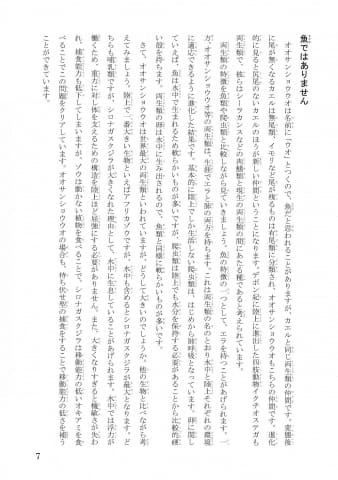 魚ではありません
オオサンショウウオは名前に「ウオ」とつくので、魚だと思われることがありますが、カエルと同じ両生類の仲間です。変態後
に尾が無くなるカエルは無尾類、イモリなど尾が残るものは有尾類に分類され、オオサンショウウオもこちらの仲間です。進化
的に見ると尻尾のないカエルのほうが新しい仲間ということになります。デボン紀に陸上に進出した四肢動物イクチオステガも
両生類で、彼らはシーラカンスなどの肉鰭類と現生の両生類の間にあたる種であると考えられています。
両生類の特徴を魚類や爬虫類と比較しながら見ていきましょう。魚の特徴の一つとして、エラを持つことがあげられます。一
方、オオサンショウウオ等の両生類は、生涯でエラと肺の両方を持ちます。これは両生類の名のとおり水中と陸上それぞれの環境
に適応できるように進化した結果です。基本的に陸上でしか生活しない爬虫類は、はじめから肺呼吸となっています。卵に関し
ていえば、魚は水中で生まれるため軟らかいものが多いですが、爬虫類は陸上でも水分を保持する必要があることから比較的硬
い殻を持ちます。両生類の卵は水中に生み出されるので、魚類と同様に軟らかいものが多いです。
さて、オオサンショウウオは世界最大の両生類といわれていますが、どうして大きいのでしょうか。他の生物と比べながら考
えてみましょう。陸上で一番大きい生物といえばアフリカゾウですが、水中も含めるとシロナガスクジラが最大となります。ど
ちらも哺乳類ですが、シロナガスクジラが大きくなれた理由として、水中に生息していることがあげられます。水中では浮力が
働くため、重力に対し体を支えるための構造を陸上ほど頑強にする必要がありません。また、大きくなりすぎると機敏さが失わ
れ、捕食能力も低下してしまいますが、ゾウは動かない植物を食べることで、シロナガスクジラは移動能力の低いオキアミを食
べることでこの問題をクリアしています。オオサンショウウオの場合も、待ち伏せ型の捕食をすることで移動能力の低さを補う
ことができています。
7